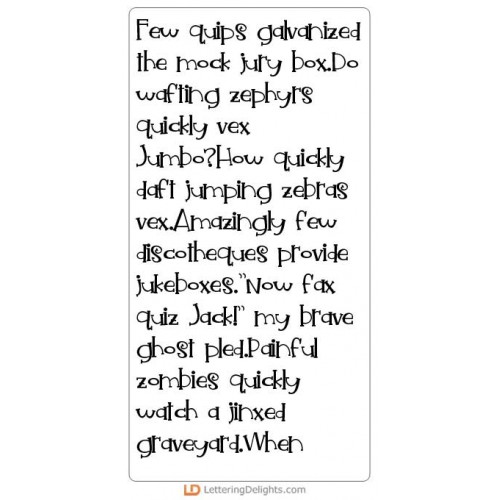 Few quips galvanized
the mock jury box.Do
wafting zephyrs
quickly vex
Jumbo?How quickly
daft jumping zebras
vex.Amazingly few
discotheques provide
jukeboxes."Now fax
quiz Jack!" my brave
ghost pled.Painful
zombies quickly
watch a jinxed
graveyard.When
LD LetteringDelights.com